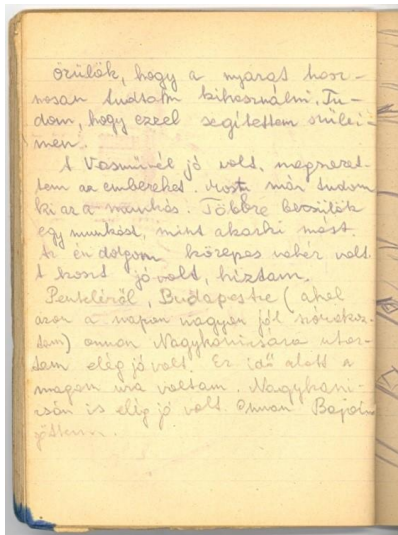 örülök, hogy a nyarat hasz-
nosan tudtam kihasználni. Tu-
dom, hogy ezzel segítettem szülei-
men.
A Vasműnél jó volt, megszeret-
tem az embereket. Most már tudom
ki az a munkás. Többre becsülök
egy munkást, mint akárki mást.
Az én dolgom közepes nehéz volt.
A koszt jó volt, híztam.
Penteléről, Budapestre (ahol
azon a napon nagyon jól szórakoz-
tam) onnan Nagykanizsára utaz-
tam elég jó volt. Ez idő alatt a
magam ura voltam. Nagykani-
zsán is elég jó volt. Onnan Bajára
jöttem.